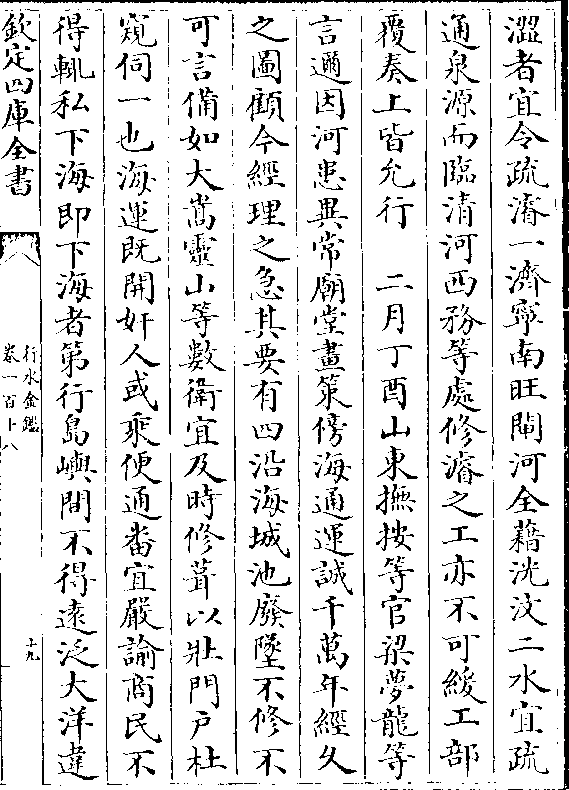 澀者宜令疏濬一濟寧南旺閘河全藉洸汶二水宜疏
通泉源而臨清河西務等處修濬之工亦不可緩工部
覆奏上皆允行　二月丁酉山東撫按等官梁夢龍等
言邇因河患異常廟堂畫策傍海通運誠千萬年經久
之圖顧今經理之急其要有四沿海城池廢墜不修不
可言備如大嵩靈山等數衛宜及時修葺以壯門戶杜
窺伺一也海運既開奸人或乘便通番宜嚴諭商民不
得輒私下海即下海者第行島嶼間不得遠泛大洋違
欽定四庫全書
行水金鑑
卷一百十八
十九